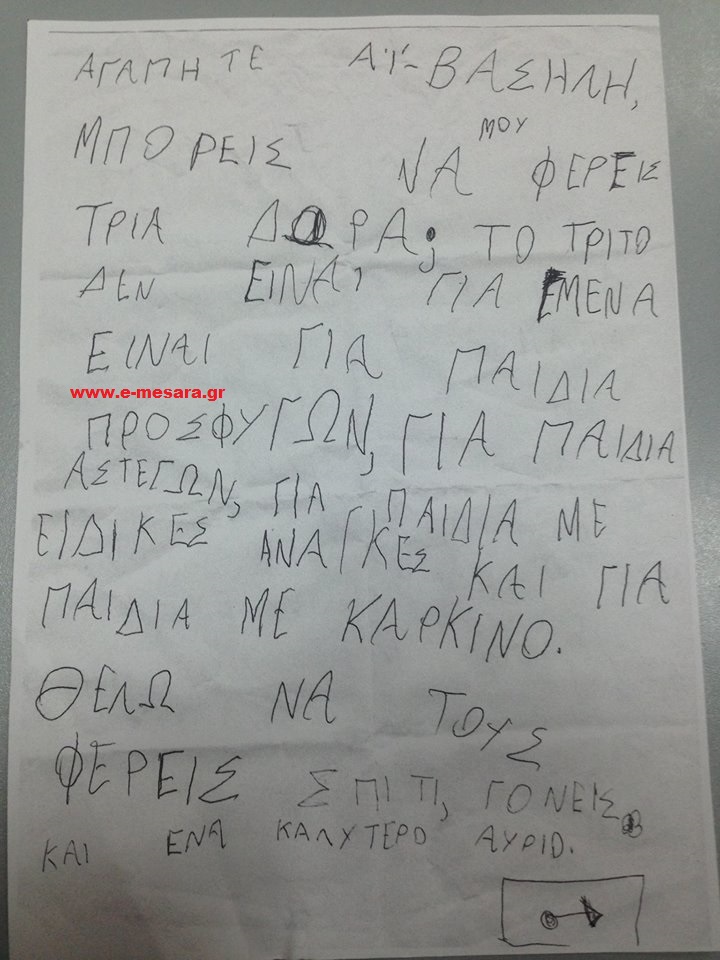 ΑΓΑΠΗΤΕ ΑΪ-ΒΑΣΗΛΗ,
ΜΠΟΡΕΙΣ ΝΑ ΜΟΥ ΦΕΡΕΙΣ
ΤΡΙΑ ΔΩΡΑ; ΤΟ ΤΡΙΤΟ
ΔΕΝ ΕΙΝΑΙ ΓΙΑ ΕΜΕΝΑ
ΕΙΝΑΙ ΓΙΑ ΠΑΙΔΙΑ
www.e-mesara.gr
ΠΡΟΣΦΥΓΩΝ, ΓΙΑ ΠΑΙΔΙΑ
ΑΣΤΕΓΩΝ, ΓΙΑ ΠΑΙΔΙΑ ΜΕ
ΕΙΔΙΚΕΣ ΑΝΑΓΚΕΣ ΚΑΙ ΓΙΑ
ΠΑΙΔΙΑ ΜΕ ΚΑΡΚΙΝΟ.
ΘΕΛΩ ΝΑ ΤΟΥΣ
ΦΕΡΕΙΣ ΣΠΙΤΙ, ΓΟΝΕΙΣ
ΚΑΙ ΕΝΑ ΚΑΛΥΤΕΡΟ ΑΥΡΙΟ.